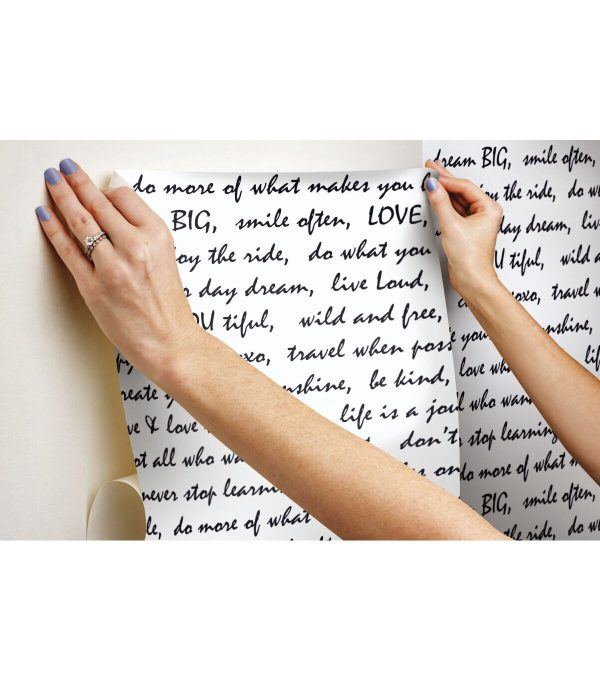 do more of what makes you
BIG, smile often, LOVE,
the ride, do what you
day dream, live Loud,
U tiful, wild and free,
xo, travel when poss
nshine, be kind,
& love life is a jou
don't
all who wa
never stop learnin
le, do more of what
dream BIG, smile often,
the ride, do w
day dream, liv
U tiful, wild a
xoxo, travel w
you nshine,
love wh life
who wan
stop learning
do more of what m
BIG, smile often,
the ride, do w